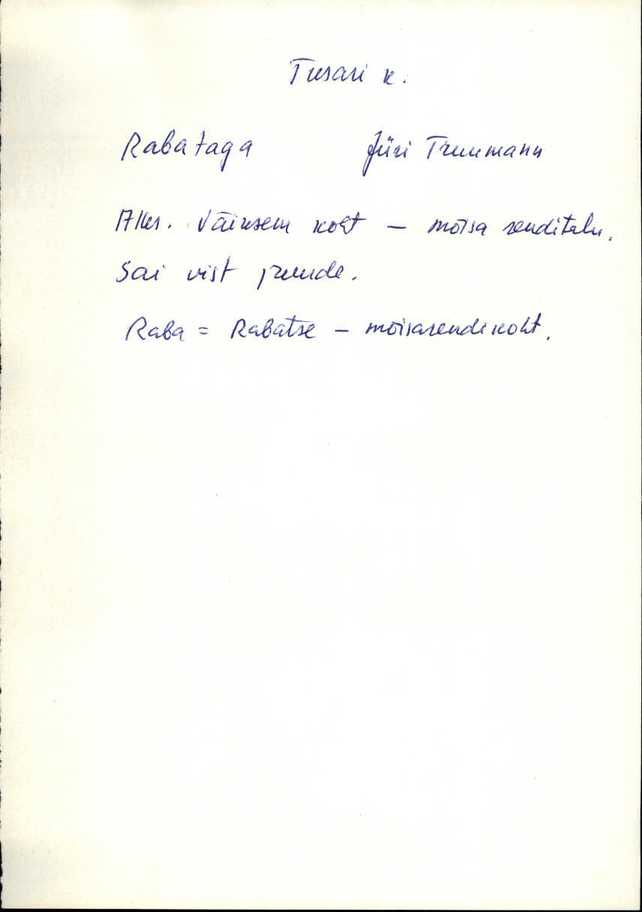 Tusari k.
Rabataga Jüri Truumann
Väiksem koht – mõisa renditalu.
Sai vist juurde.
Raba = Rabatse – mõisarendikoht.